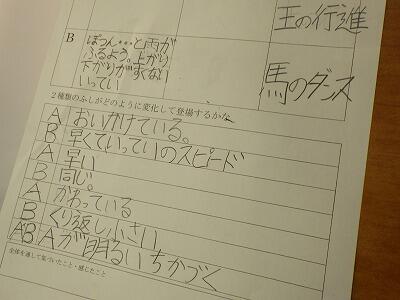 王の行進
B
ぽつん…と雨が
ふるよう。上がり
下がりがすくない
いってい
馬のダンス
2種類のふしがどのように変化して登場するかな
A おいかけている。
B 早くていっていのスピード
A 早い
B 同じ。
A かわっている
B くり返し小さい
AB Aが明るいちかづく
全体を通して気づいたこと・感じたこと